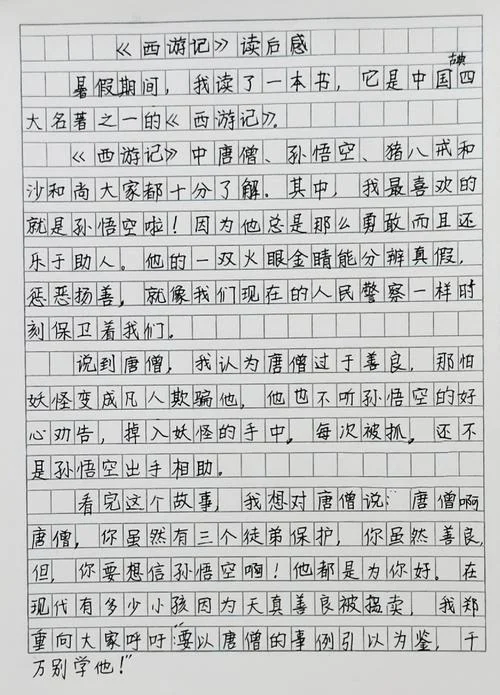 《西游记》读后感
暑假期间，我读了一本书，它是中国古典四
大名著之一的《西游记》。
《西游记》中唐僧、孙悟空、猪八戒和
沙和尚大家都十分了解。其中，我最喜欢的
就是孙悟空啦！因为他总是那么勇敢而且还
乐于助人。他的一双火眼金睛能分辨真假，
惩恶扬善，就像我们现在的人民警察一样时
刻保卫着我们。
说到唐僧，我认为唐僧过于善良，那怕
妖怪变成凡人欺骗他，他也不听孙悟空的好
心劝告，掉入妖怪的手中。每次被抓，还不
是孙悟空出手相助。
看完这个故事，我想对唐僧说：唐僧啊
唐僧，你虽然有三个徒弟保护，你虽然善良，
但，你要想信孙悟空啊！他都是为你好。在
现代有多少小孩因为天真善良被拐卖，我郑
重向大家呼吁：“要以唐僧的事例引以为鉴，千
万别学他！”